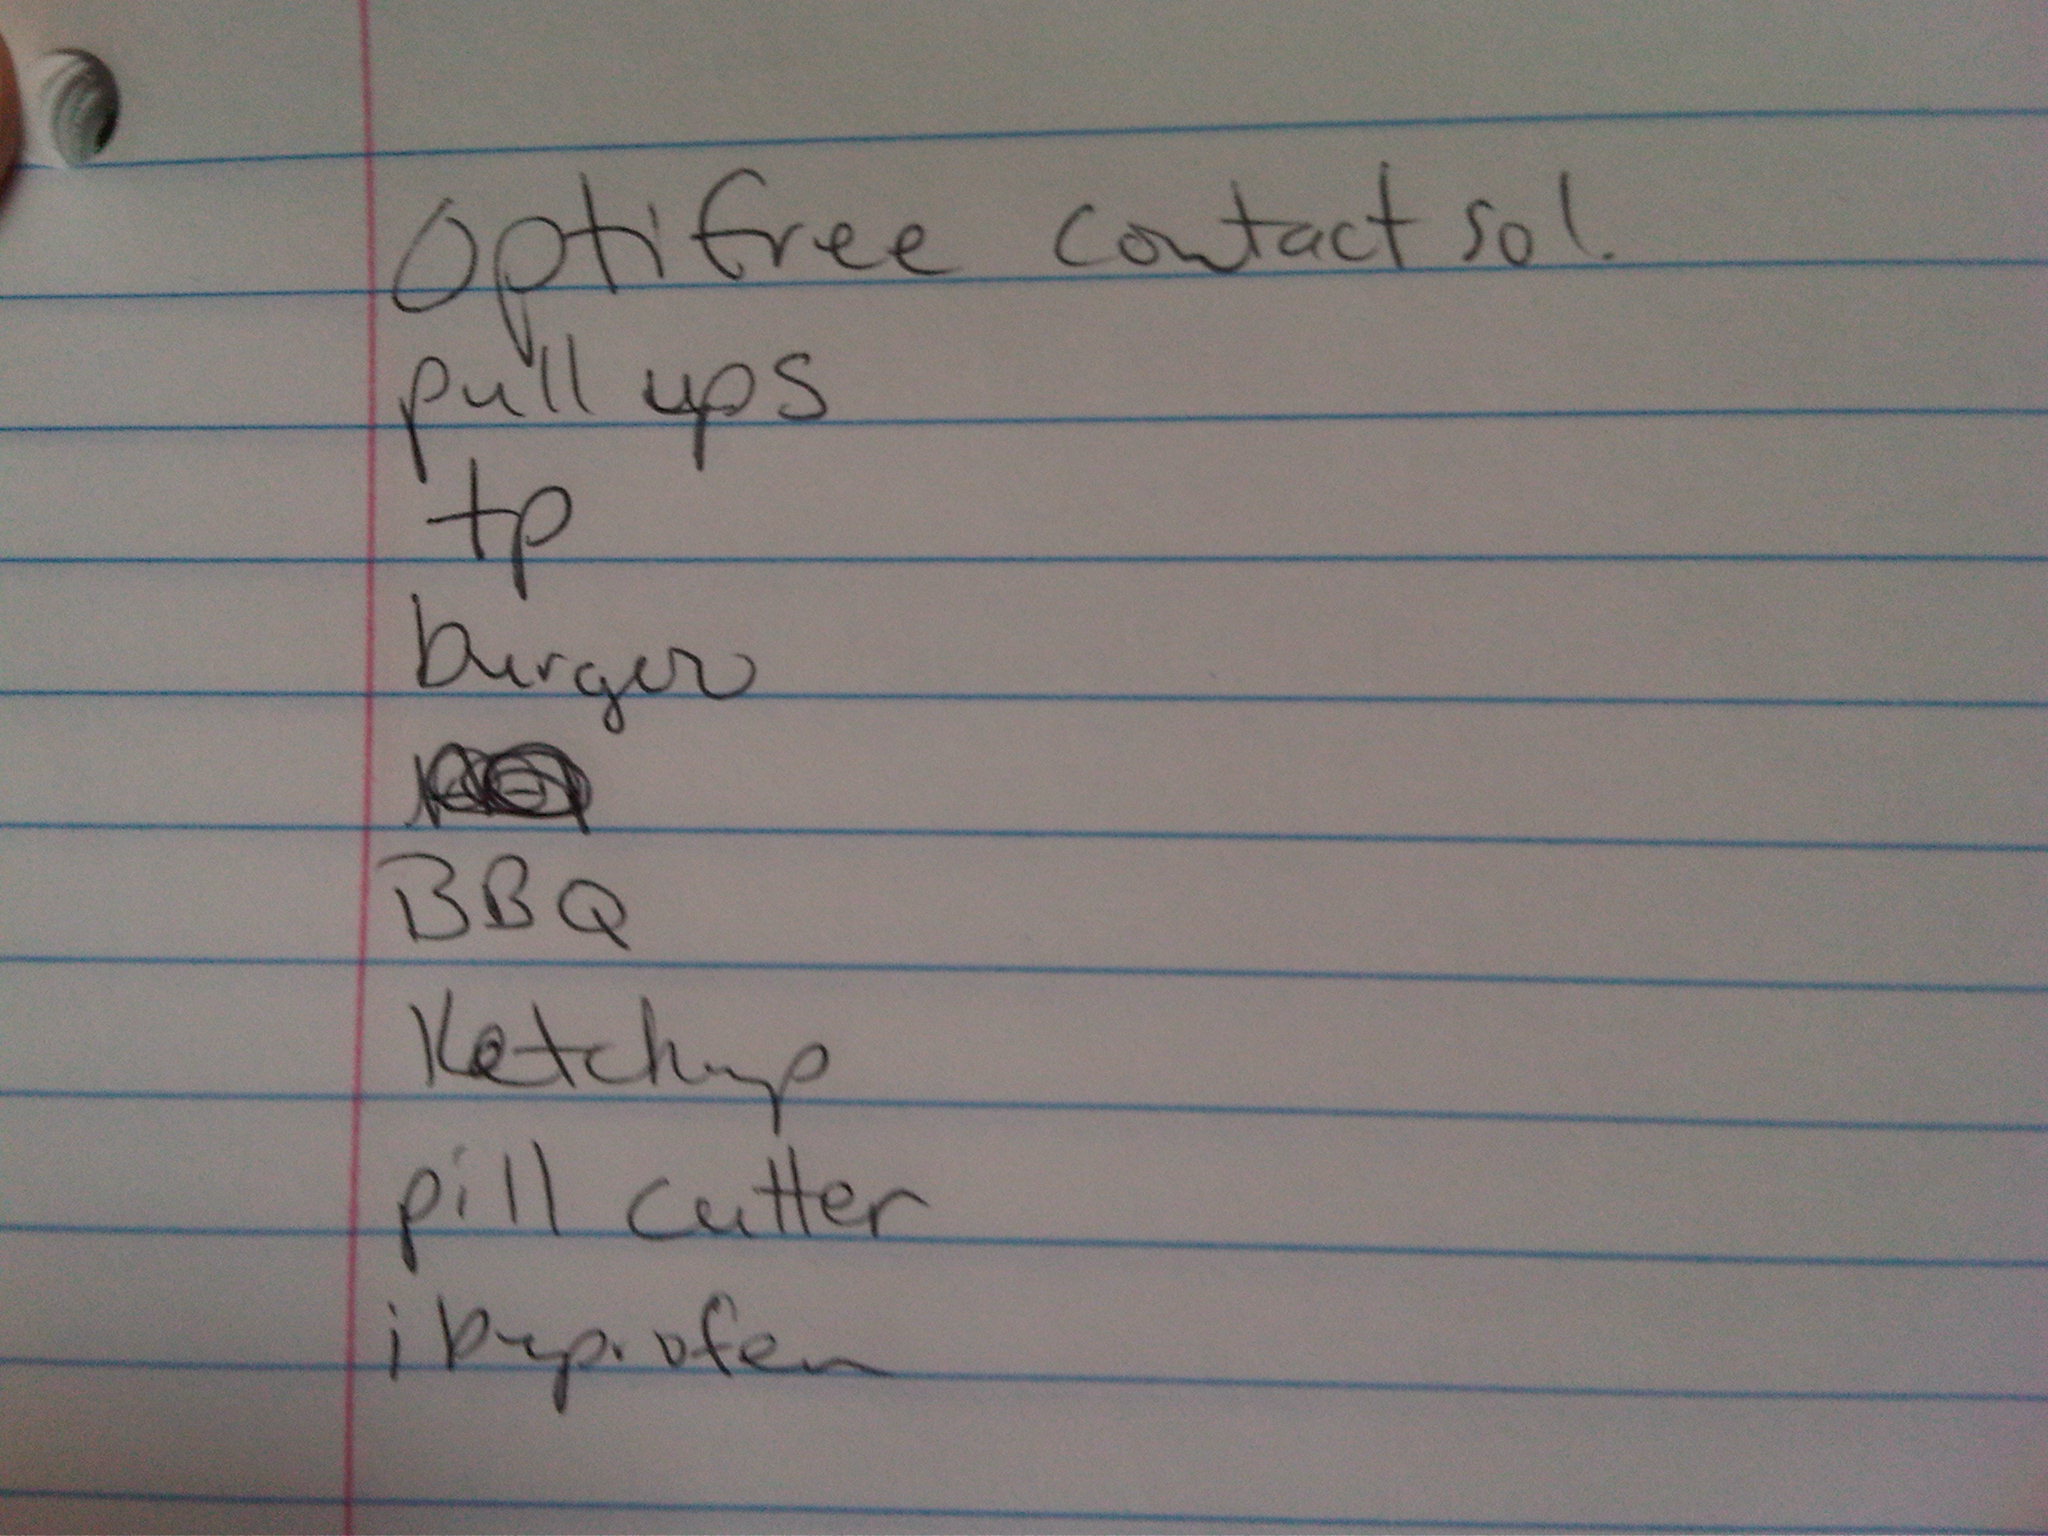 Optifree contact sol.
pull ups
tp
burger
BBQ
Ketchup
pill cutter
ibuprofen